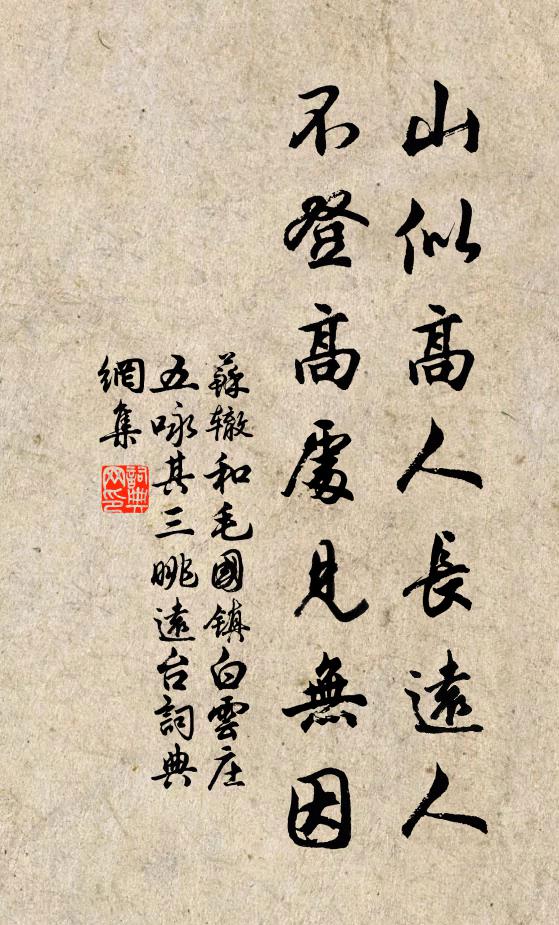 山似高人長遠人
不登高處見無因
蘇轍和毛國鎮白雲庄
五咏其三眺遠台詞典
網集
詞典
网印